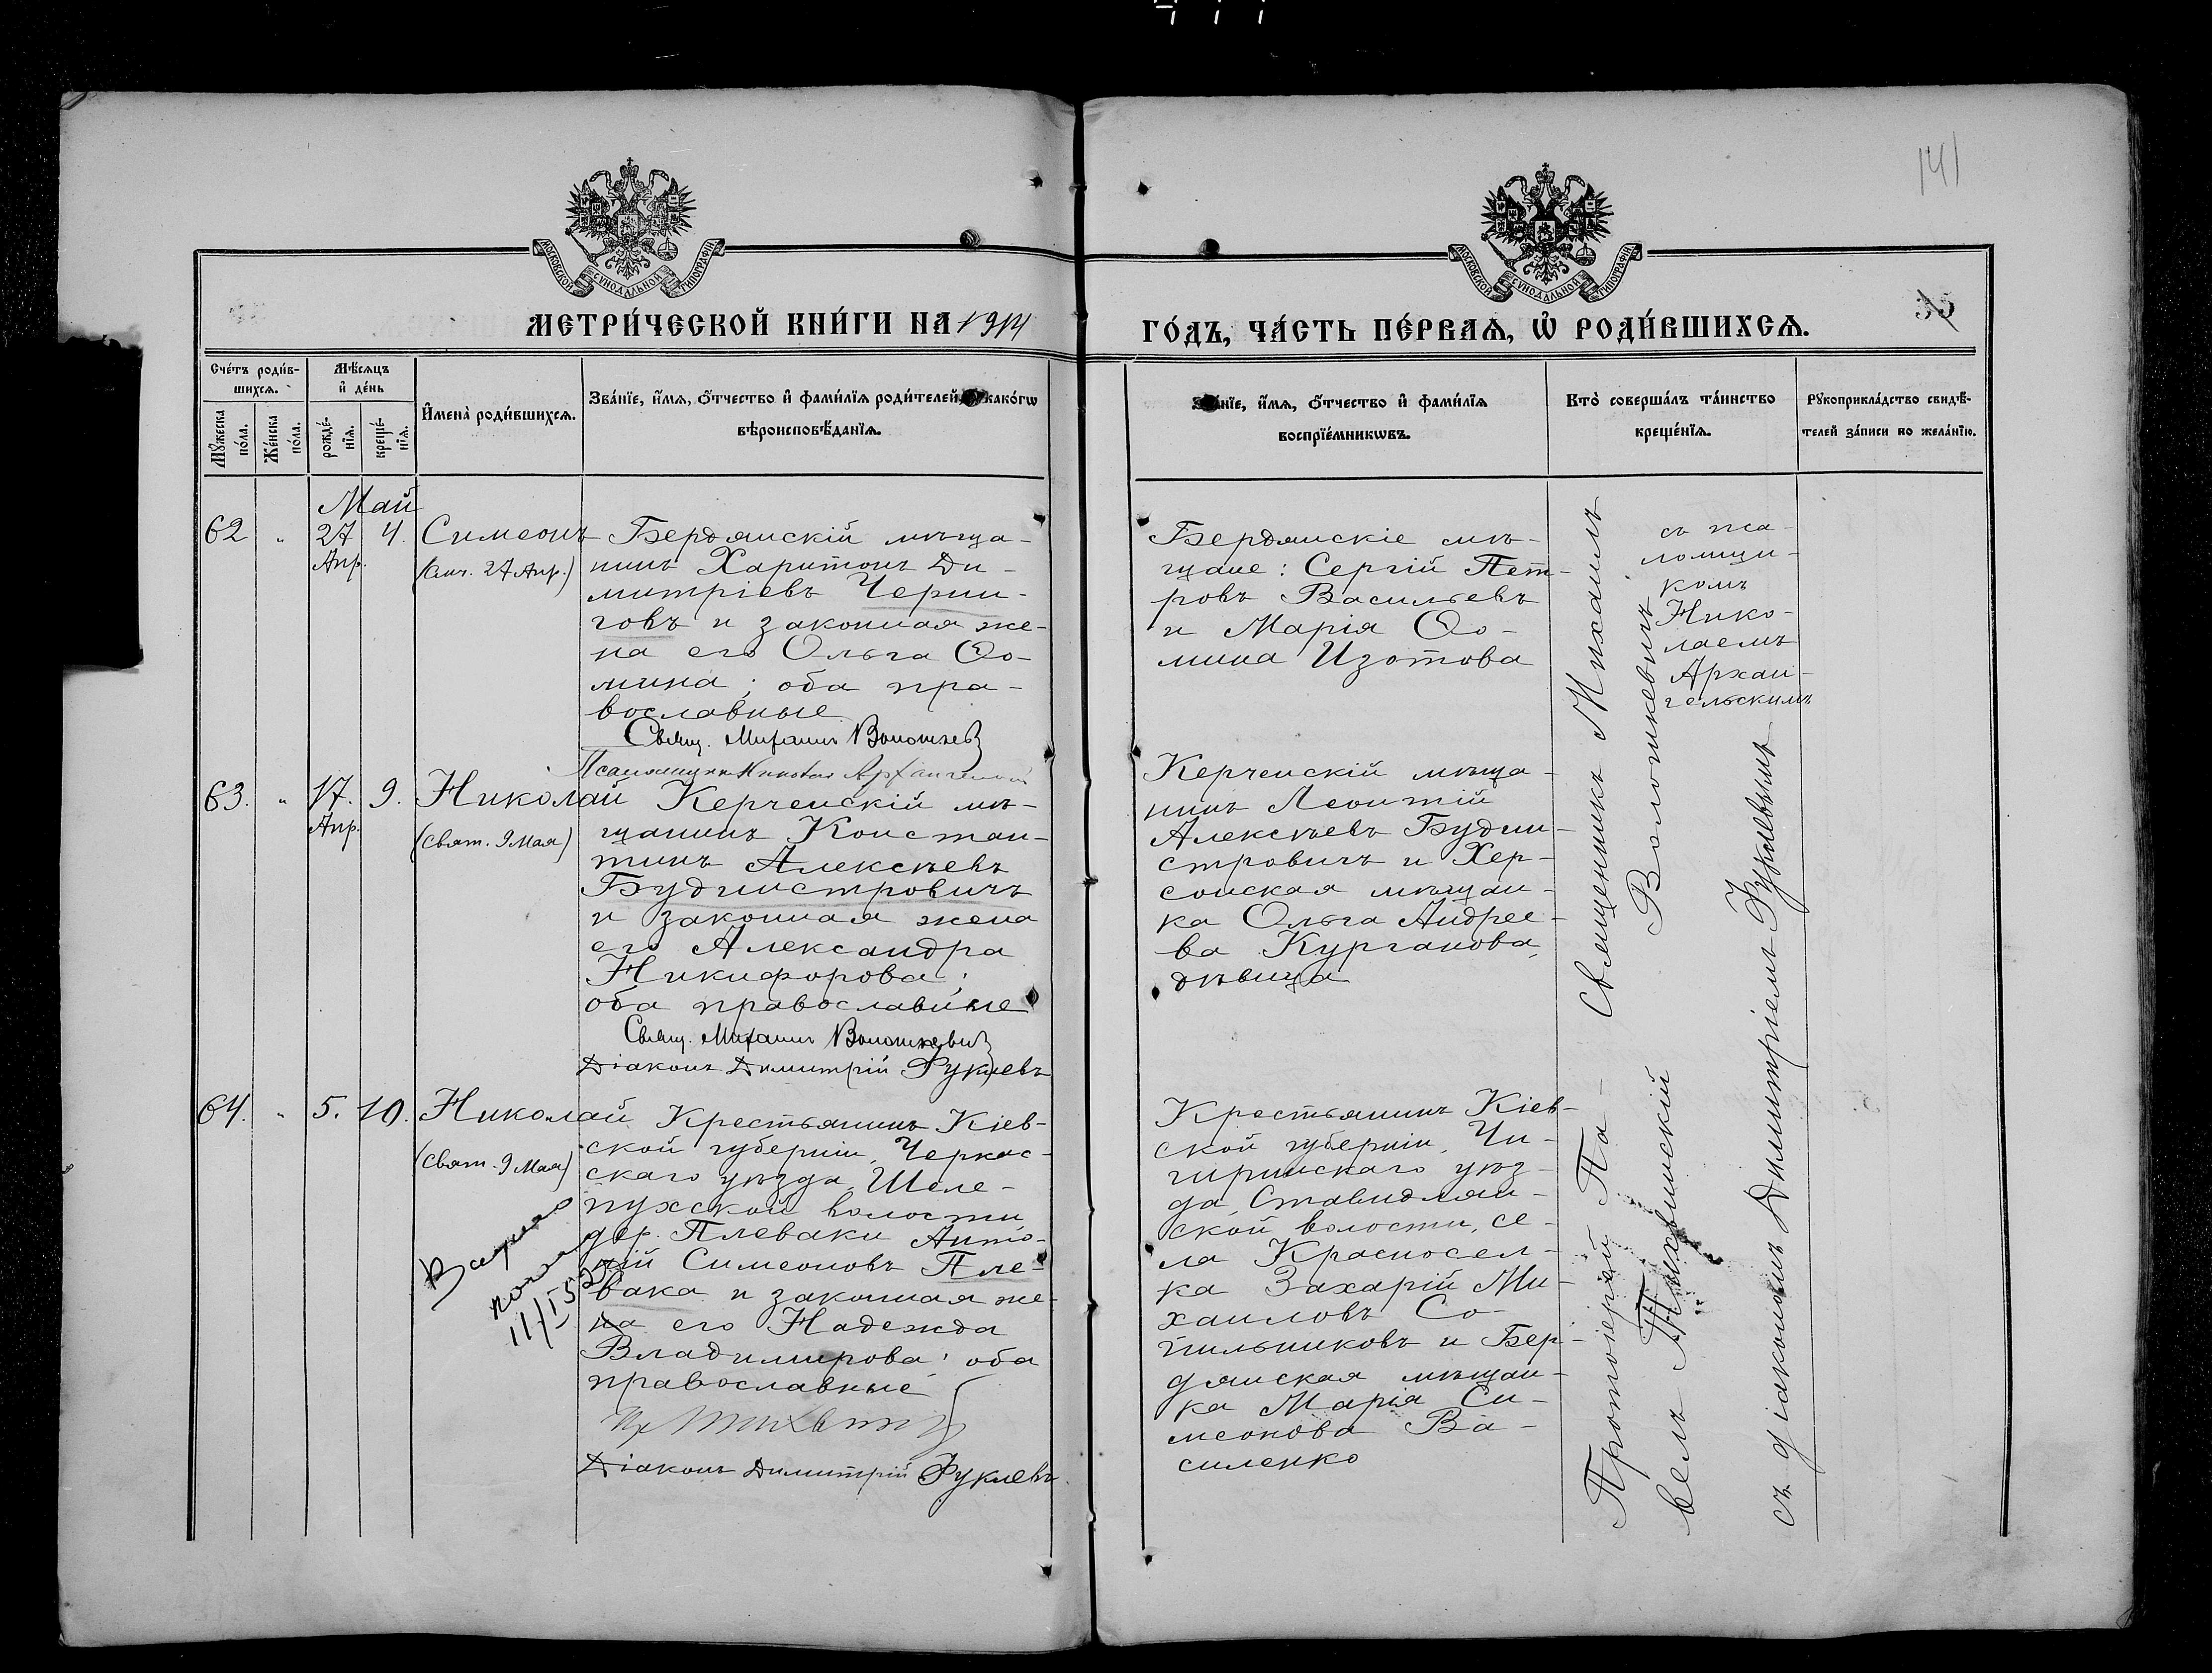 141
МОСКОВСКОЙ СѴНОДАЛЬНОЙ ТИПОГРАФІИ
МОСКОВСКОЙ СѴНОДАЛЬНОЙ ТИПОГРАФІИ
МЕТРИ́ЧЕСКОЙ КНИ́ГИ НА 1914
ГО́ДЪ, ЧА́СТЬ ПЕ́РВАЯ, Ѽ РОДИ́ВШИХСѦ.
35
Сче́тъ роди́в-
шихсѧ.
Мꙋжеска по́ла.
Же́нска по́ла.
Мѣ́сѧцъ
и҆ де́нь
рожде́-
нїѧ.
креще́-
нїѧ.
И҆мена̀ роди́вшихсѧ.
Зва́нїе, и҆́мѧ, ѻ҆́тчество и҆ фами́лїѧ роди́телей, како́гѡ
вѣроисповѣ́данїѧ.
Зва́нїе, и҆́мѧ, ѻ҆́тчество и҆ фами́лїѧ
воспрїе́мникѡвъ.
Кто̀ соверша́лъ та́инство
креще́нїѧ.
Рꙋкоприкла́дство свидѣ́-
телей за́писи по жела́нїю.
Май
62 " 27 4. Симеонъ
Апр.
(Свщ. 27 Апр.)
Бердянскій мѣща-
нинъ Харитонъ Ди-
митріевъ Черни-
говъ и законная же-
на его Ольга Ѳо-
мина; оба пра-
вославные
Свящ. Михаилъ Волошкевич
Псаломщикъ Николай Архангельскій
Бердянскіе мѣ-
щане: Сергій Пет-
ровъ Васильевъ
и Марія Ѳо-
мина Изотова
Священникъ Михаилъ
Волошкевичъ
съ пса-
ломщи-
комъ
Нико-
лаемъ
Архан-
гельскимъ
63. " 17. 9. Николай
Апр.
(Свят. 9 Мая)
Керченскій мѣ-
щанинъ Констан-
тинъ Алексѣевъ
Будимстровичъ
и законная жена
его Александра
Никифорова;
оба православные
Свящ. Михаилъ Волошкевич
Діаконъ Димитрій Фуклевъ
Керченскій мѣща-
нинъ Леонтій
Алексѣевъ Будим-
стровичъ и Хер-
сонская мѣщан-
ка Ольга Андрее-
ва Курганова,
дѣвица
64. " 5. 10. Николай
(Свят. 9 Мая)
Крестьянинъ Кіев-
ской губерніи, Черкас-
скаго уѣзда, Шеле-
пухской волости,
дер. Плеваки Анто-
ній Симеоновъ Пле-
вака и законная же-
на его Надежда
Владимирова; оба
православные
Діаконъ Димитрій Фуклевъ
Крестьянинъ Кіев-
ской губерніи, Чи-
гиринскаго уѣз-
да, Ставидлян-
ской волости, се-
ла Красносел-
ка Захарій Ми-
хаиловъ Со-
пильниковъ и Бер-
дянская мѣщан-
ка Марія Си-
меонова Ва-
силенко
Протоіерей Па-
велъ Тихвинскій
съ діакономъ Димитріемъ Фуклевымъ